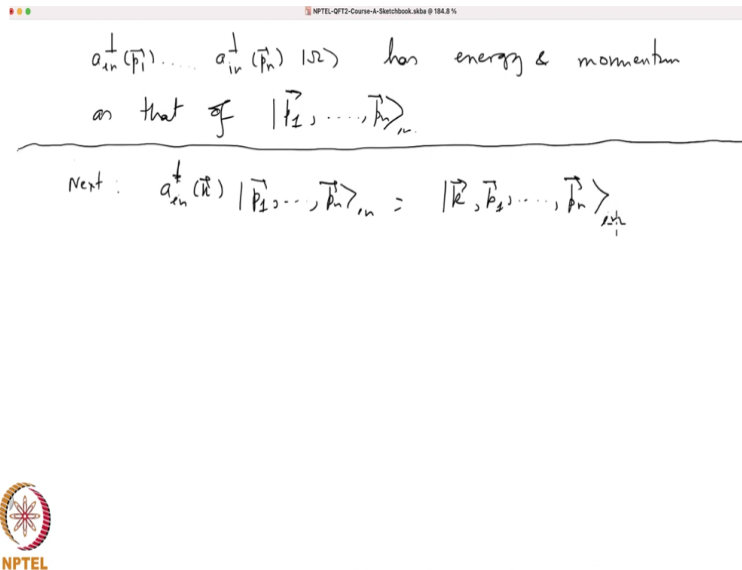 NPTEL-QFT2-Course-A-Sketchbook.skba @ 184.8 %
a†in(p⃗1) ..... a†in(p⃗n) |Ω⟩ has energy & momentum
as that of |p⃗1, ....., p⃗n⟩in
Next : a†in(k⃗) |p⃗1, ..., p⃗n⟩in = |k⃗, p⃗1, ....., p⃗n⟩in
NPTEL